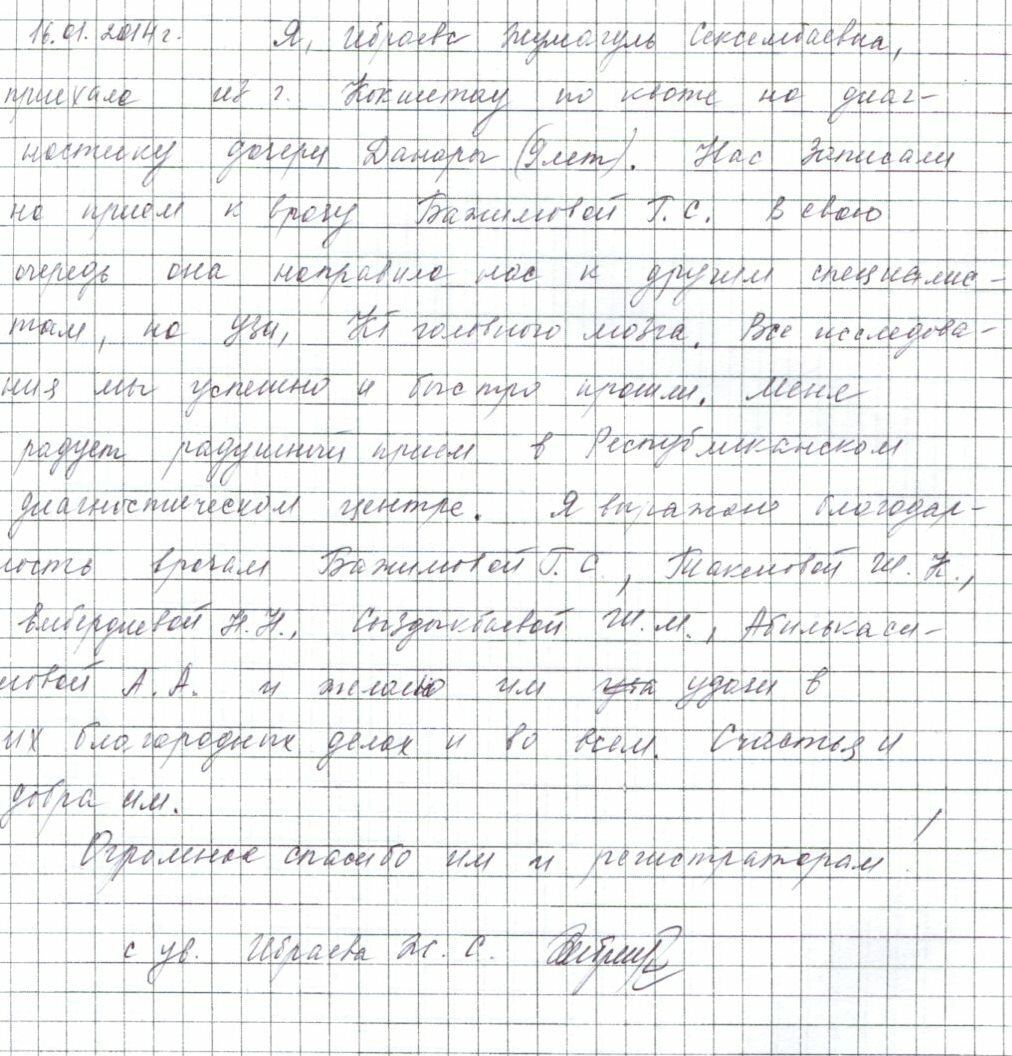 16.01.2014г. Я, Ибраева Жумагуль Сексембаевна,
приехала из г. Кокшетау по квоте на диаг-
ностику дочери Данары (9 лет). Нас записали
на прием к врачу Бажимовой Г.С. В свою
очередь она направила нас к другим специалис-
там, на узи, КТ головного мозга. Все исследова-
ния мы успешно и быстро прошли. Меня
радует радушный прием в Республиканском
диагностическом центре. Я выражаю благодар-
ность врачам Бажимовой Г.С., Такеновой Ш.К.,
Ембердиевой Н.Н., Сыздыкбаевой Ш.М., Абилькаси-
мовой А.А. и желаю им удачи в
их благородных делах и во всем. Счастья и
добра им.
Огромное спасибо им и регистраторам!
с ув. Ибраева Ж.С.